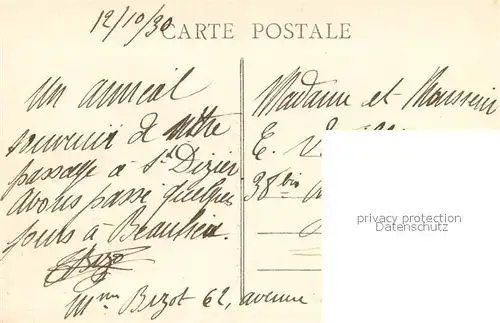 12/10/30
CARTE POSTALE
Un amical
souvenir de notre
passage à St Dizier
Avons passé quelques
jours à Beaulieu.
Bizot
Mme Bizot 62, avenue
Madame et Monsieur
E. V
38 bis
privacy protection